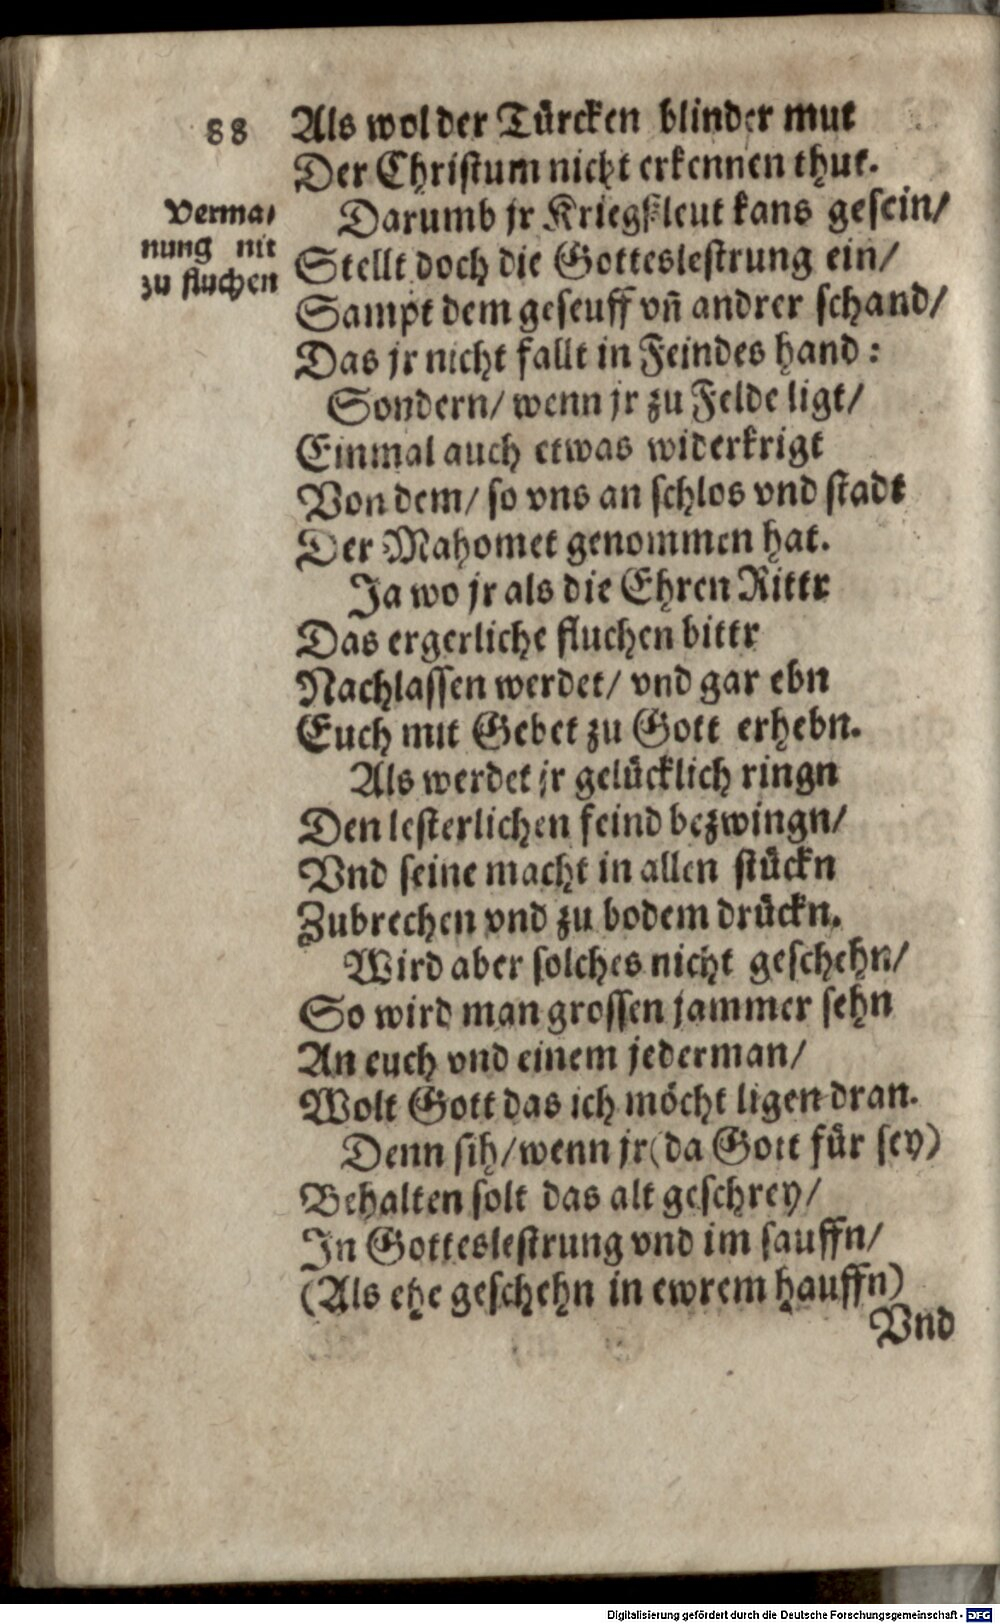 88
Als wol der Türcken blinder mut
Der Christum nicht erkennen thut.
Verma-
nung nit
zu fluchen
Darumb jr Kriegßleut kans gesein/
Stellt doch die Gotteslestrung ein/
Sampt dem geseuff vn̄ andrer schand/
Das jr nicht fallt in Feindes hand:
Sondern/ wenn jr zu Felde ligt/
Einmal auch etwas widerkrigt
Von dem/ so vns an schlos vnd stadt
Der Mahomet genommen hat.
Ja wo jr als die Ehren Rittr
Das ergerliche fluchen bittr
Nachlassen werdet/ vnd gar ebn
Euch mit Gebet zu Gott erhebn.
Als werdet jr gelücklich ringn
Den lesterlichen feind bezwingn/
Vnd seine macht in allen stückn
Zubrechen vnd zu bodem drückn.
Wird aber solches nicht geschehn/
So wird man grossen jammer sehn
An euch vnd einem jederman/
Wolt Gott das ich möcht ligen dran.
Denn sih/ wenn jr (da Gott für sey)
Behalten solt das alt geschrey/
In Gotteslestrung vnd im sauffn/
(Als ehe geschehn in ewrem hauffn)
Vnd
Digitalisierung gefördert durch die Deutsche Forschungsgemeinschaft - DFG